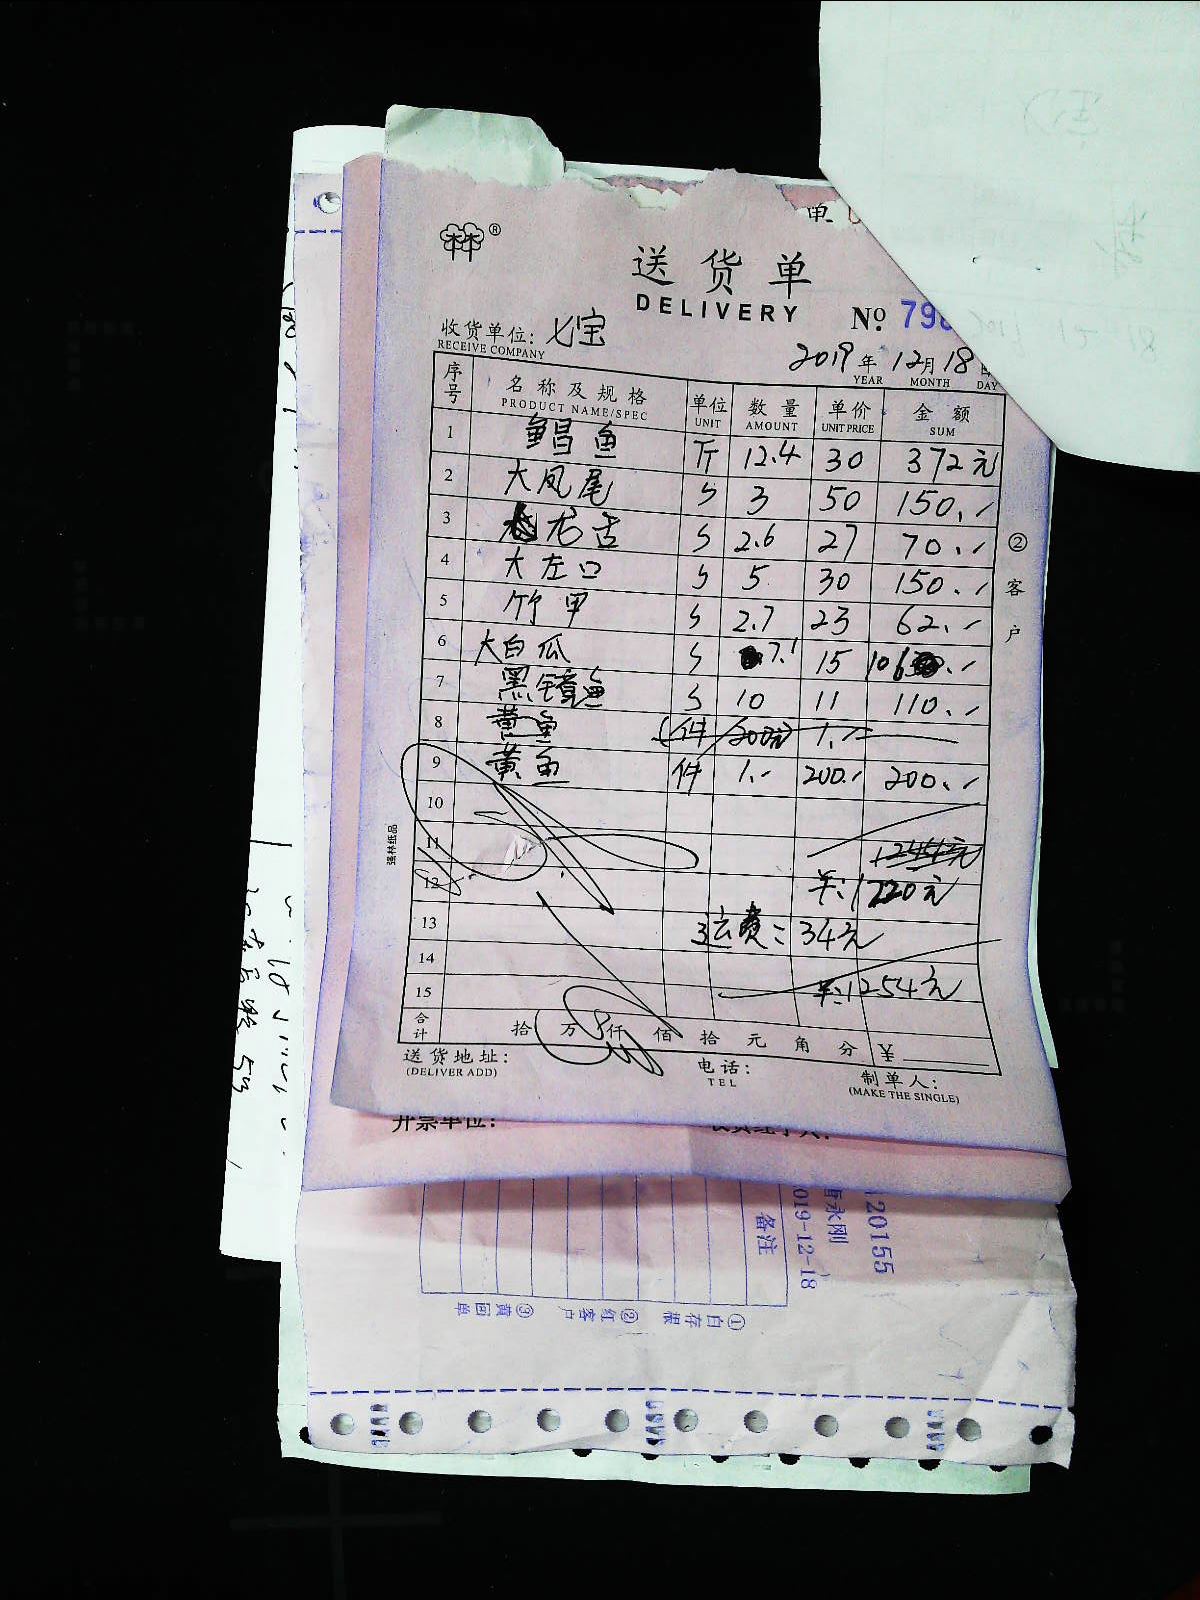 林林®
送货单
DELIVERY
№ 798
收货单位: 七宝
RECEIVE COMPANY
2019 年 12 月 18
YEAR MONTH DAY
序号 名称及规格 单位 数量 单价 金额
PRODUCT NAME/SPEC UNIT AMOUNT UNIT PRICE SUM
1 鲳鱼 斤 12.4 30 372元
2 大凤尾 〃 3 50 150.-
3 龙舌 〃 2.6 27 70.-
4 大左口 〃 5 30 150.-
5 竹甲 〃 2.7 23 62.-
6 大白瓜 〃 7.1 15 106.-
7 黑镜鱼 〃 10 11 110.-
8 黄鱼 件 200元 1.-
9 黄鱼 件 1.- 200.- 200.-
10
11 1244元
12 平:1220元
13 运费: 34元
14
15 平:1254元
合计 拾 万 仟 佰 拾 元 角 分 ¥
送货地址:
(DELIVER ADD)
电话:
TEL
制单人:
(MAKE THE SINGLE)
②客户
强林纸品
单
开票单位:
备注
20155
唐永刚
019-12-18
①白存根 ②红客户 ③黄回单